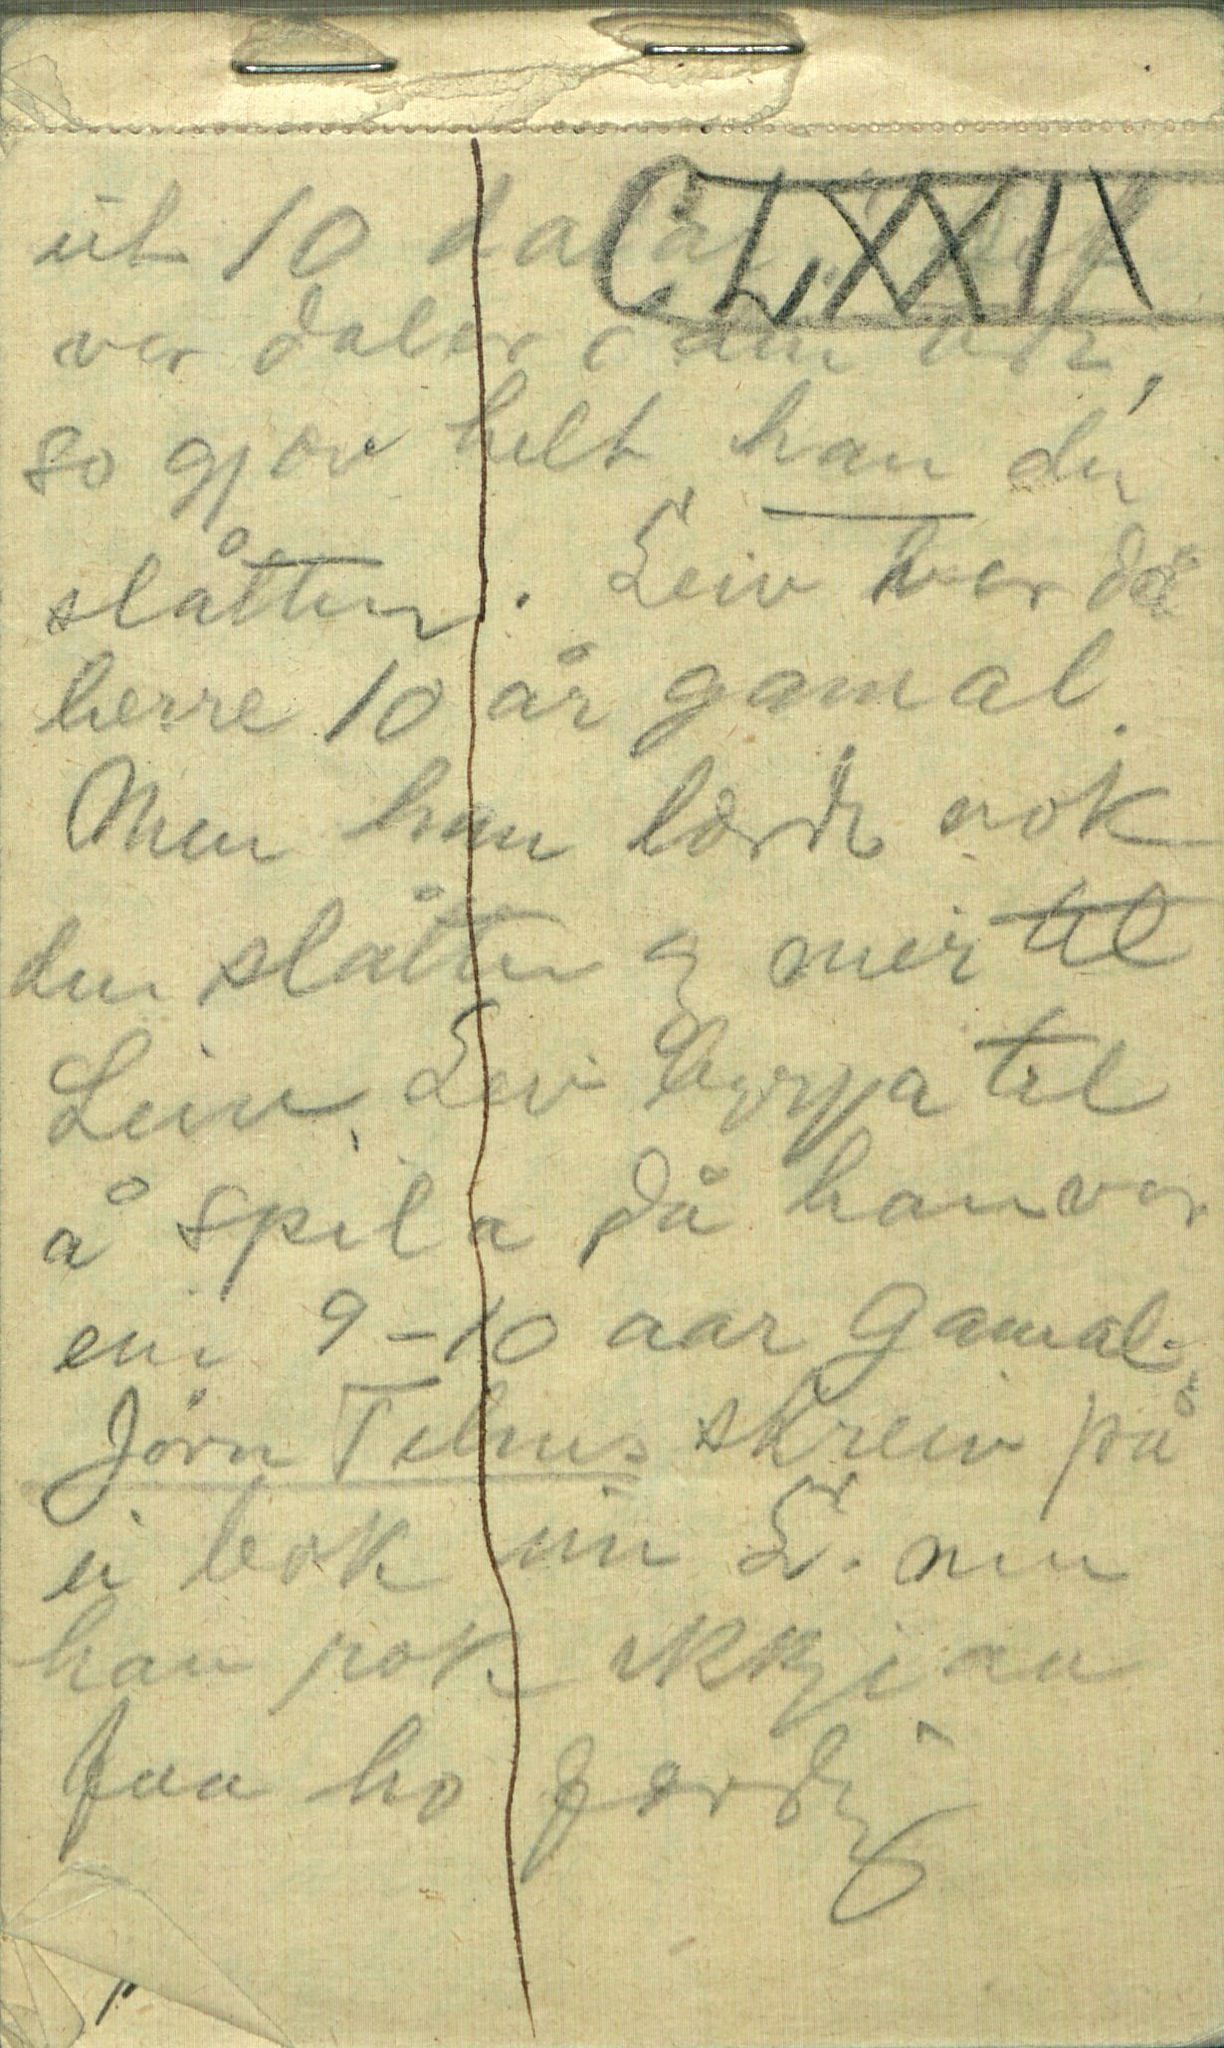 CLXXIX
ut 10 dalar. Det
var daler i dm
so gjov helt han den
slåtten. Leiv var då
berre 10 år gamal.
Men han lærde nok
den slåtten og meir til
Leiv. Leiv byrja til
å spila då han var
ein 9-10 aar gamal.
Jörn Telnes skreiv på
ei bok um L. men
han rok ikkje an
faa ho færdig